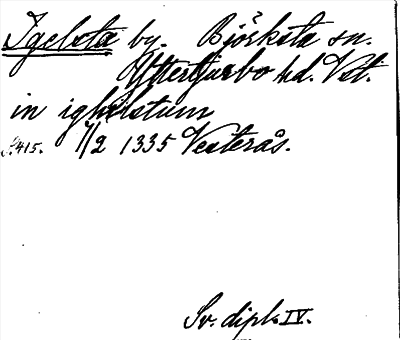 Igelsta by. Björksta sn.
Yttertjurbo hd. Vstl.
in ighilstum
S. 415. 7/2 1335 Vesterås.
Sv. dipl. IV.